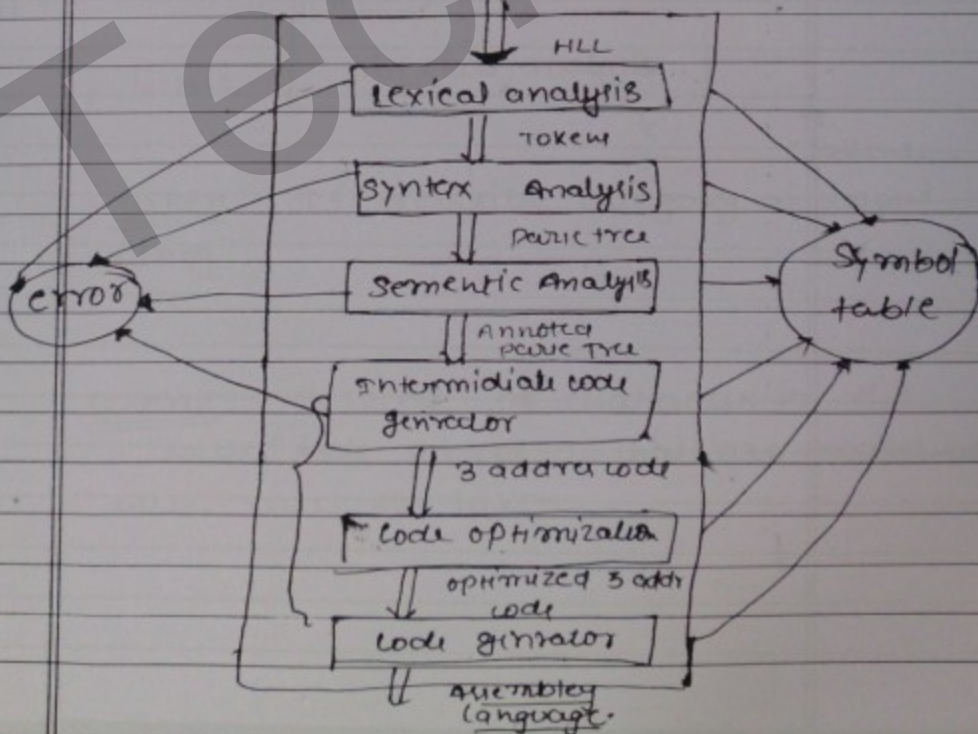 Tec
HLL
Lexical analysis
Token
Syntax Analysis
parse tree
error
Sementic Analysis
Symbol
table
Annoted
parse Tree
Intermidiate code
genrator
3 addres code
Code optimization
optimized 3 addr
code
Code genrator
Assembley
Language.